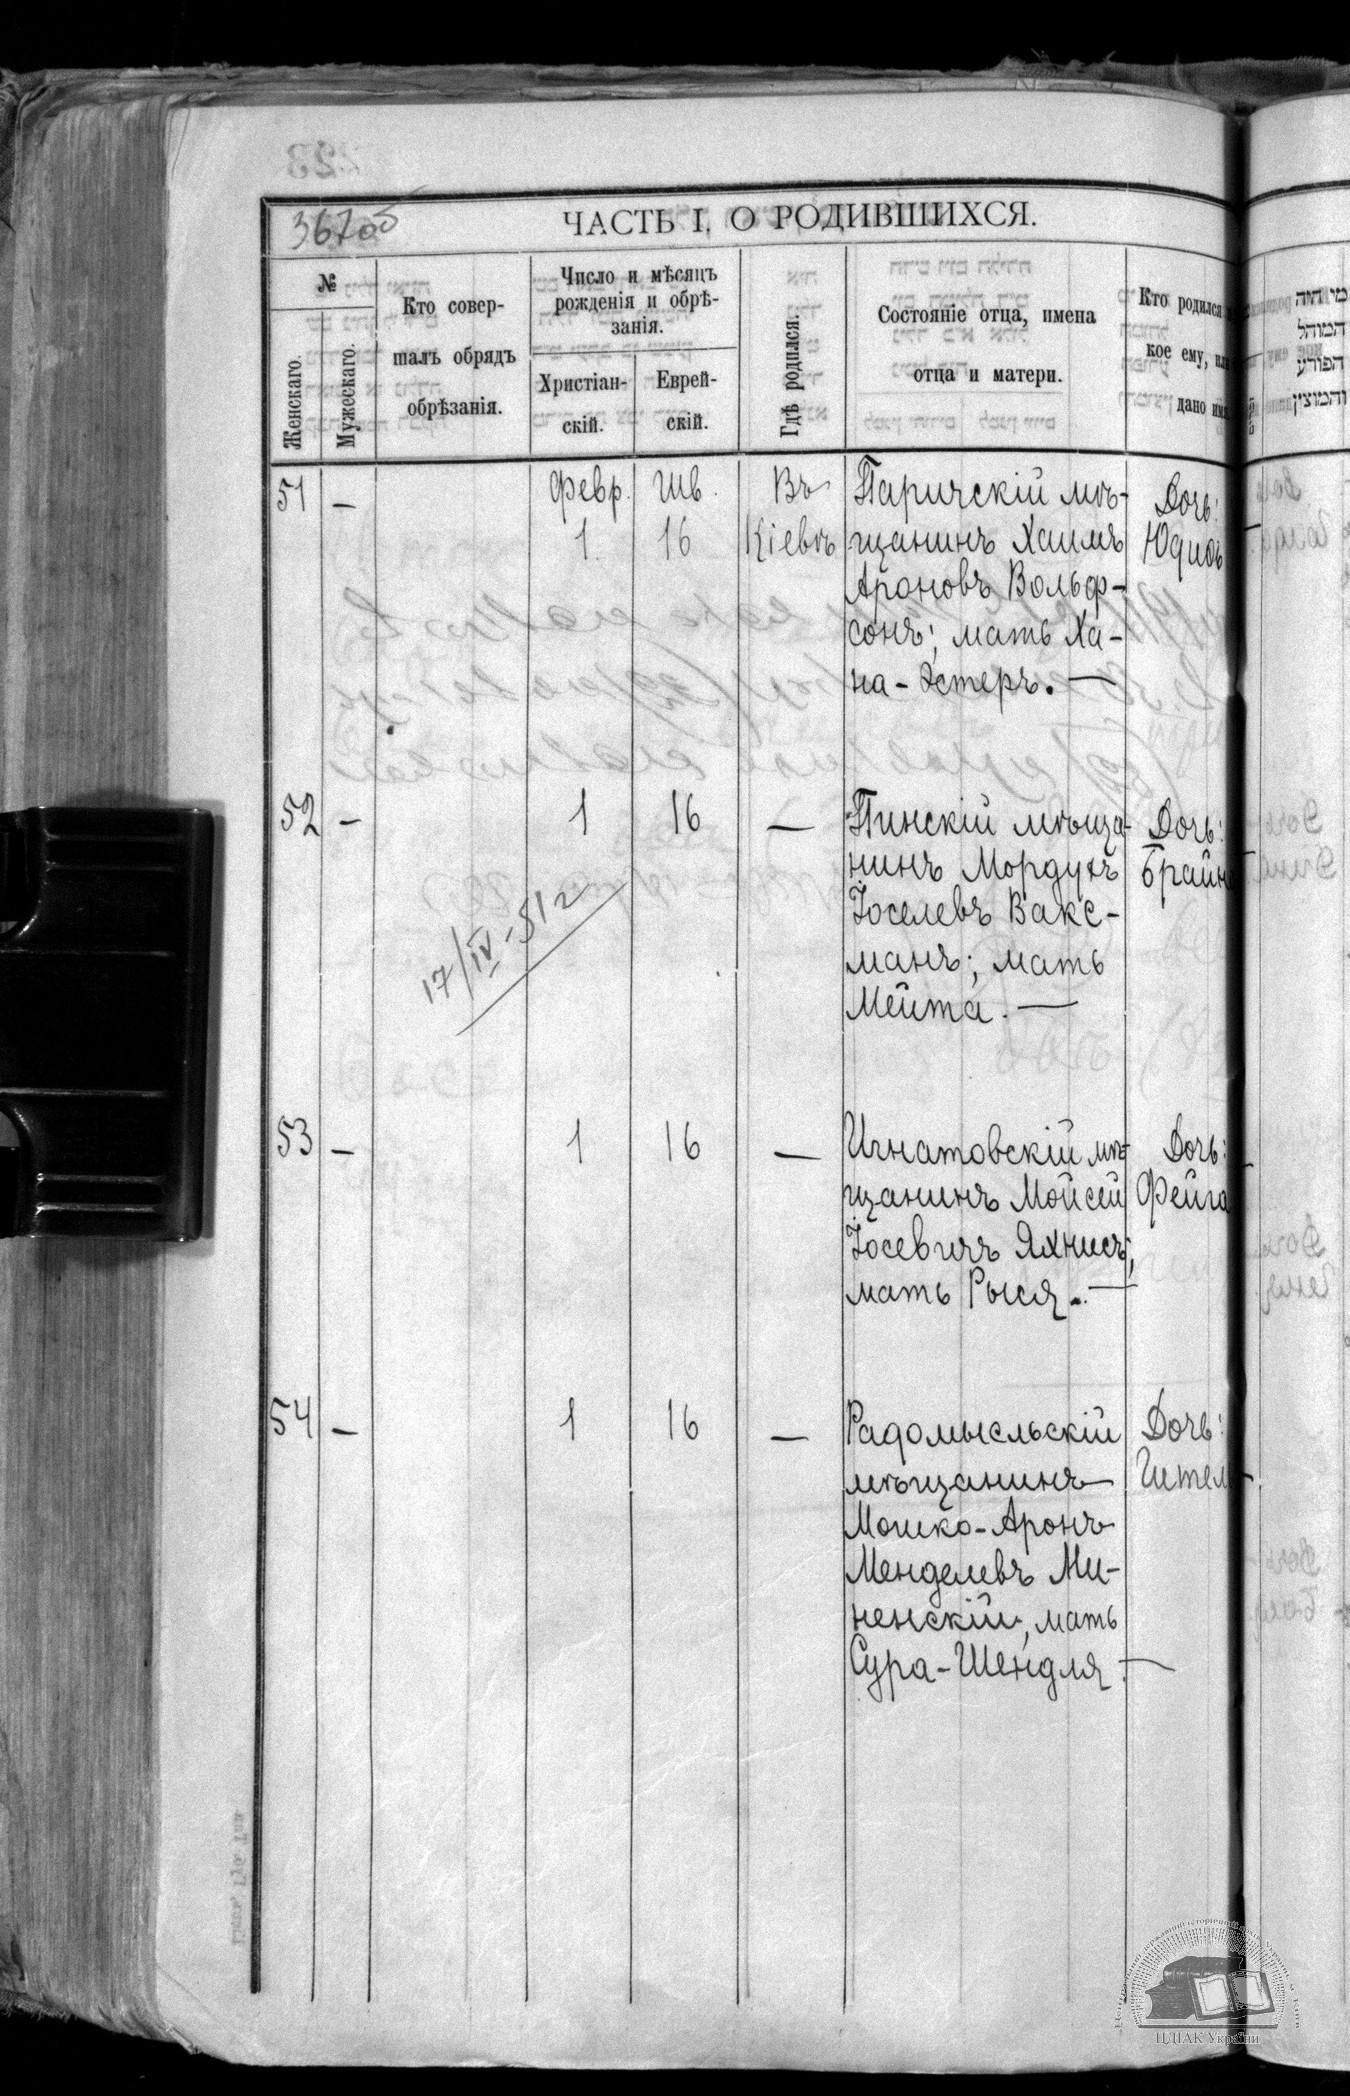 367об
ЧАСТЬ I, О РОДИВШИХСЯ.
№
Женскаго.
Мужескаго.
Кто совер-
шалъ обрядъ
обрѣзанія.
Число и мѣсяцъ
рожденія и обрѣ-
занія.
Христіан-
скій.
Еврей-
скій.
Гдѣ родился.
Состояніе отца, имена
отца и матери.
Кто родился
кое ему, или
дано имя
מי היה
המוהל
הפורע
והמוצץ
51 — Февр. 1. Шв. 16 Въ Кіевѣ
Паричскій мѣ-
щанинъ Хаимъ
Ароновъ Вольф-
сонъ; мать Ха-
на-Эстеръ. —
Дочь:
Юдиѳь
52 — 1 16 —
Пинскій мѣща-
нинъ Мордухъ
Іоселевъ Вакс-
манъ; мать
Мейта. —
Дочь:
Брайна
17/IV-512
53 — 1 16 —
Игнатовскій мѣ-
щанинъ Мойсей
Іосевичъ Яхнисъ;
мать Рыся. —
Дочь:
Фейга
54 — 1 16 —
Радомысльскій
мѣщанинъ
Мошко-Аронъ
Менделевъ Ми-
ненскій, мать
Сура-Шендля. —
Дочь:
Гител
ЦДІАК України